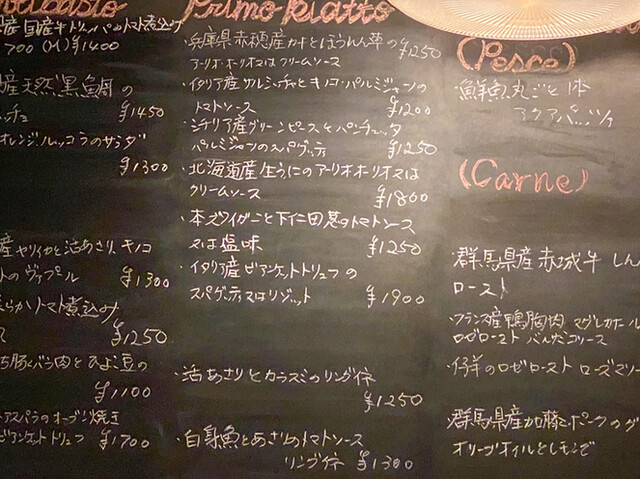 Primo Piatto
産国産牛トリッパのトマト煮込み
700 (M)¥1400
産天然黒鯛の
¥1450
オレンジ、ルッコラのサラダ
¥1300
産ヤリイカと活あさり、キノコ
のヴァプール
¥1300
らかいトマト煮込み
¥1250
豚バラ肉とひよこ豆の
¥1100
アスパラのオーブン焼き
ビアンケットトリュフ ¥1700
兵庫県赤穂産カキとほうれん草の ¥1250
アーリオ・オーリオ又はクリームソース
・イタリア産サルシッチャとキノコ・パルミジャーノの
トマトソース ¥1200
・シチリア産グリーンピースとパンチェッタ
パルミジャーノのスパゲッティ ¥1250
・北海道産生うにのアーリオ・オーリオ又は
クリームソース ¥1800
・本ズワイガニと下仁田葱のトマトソース
又は塩味 ¥1250
・イタリア産ビアンケットトリュフの
スパゲッティ又はリゾット ¥1900
・活あさりとカラスミのリングイネ
¥1250
・白身魚とあさりのトマトソース
リングイネ ¥1300
(Pesce)
・鮮魚丸ごと1本
アクアパッツァ
(Carne)
群馬県産赤城牛
ロースト
・フランス産鴨胸肉 マグレカナール
ロゼロースト バルサミコソース
・仔羊のロゼロースト ローズマリー
群馬県産加藤ポークのグ
オリーブオイルとレモンで